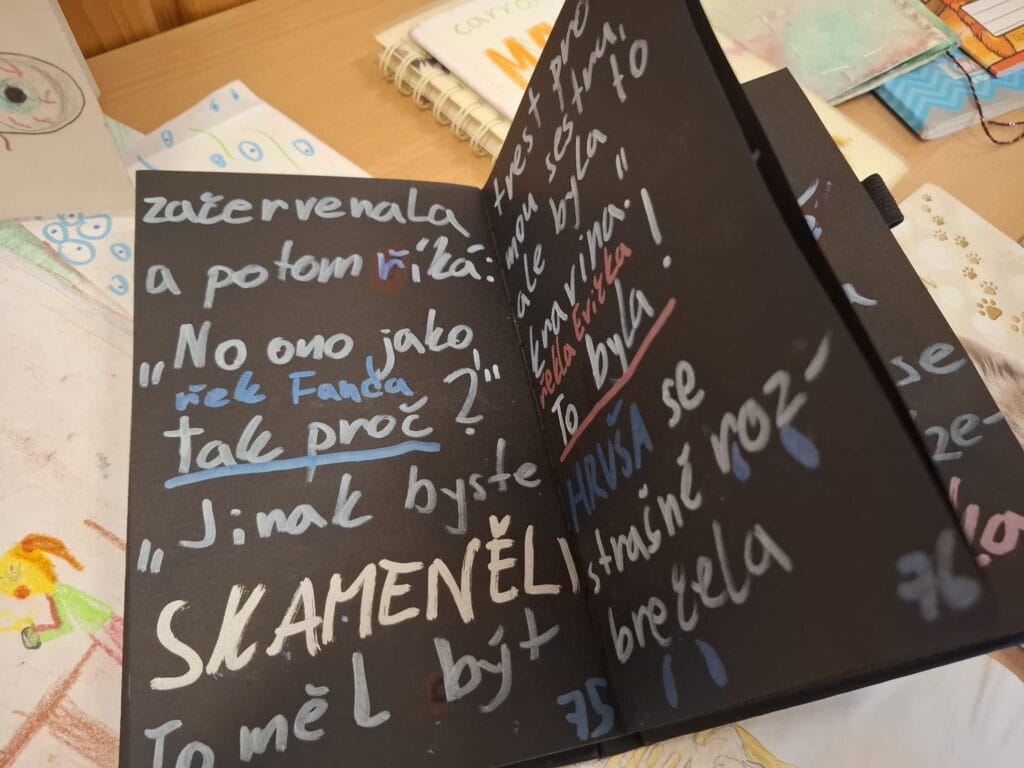 začervenala
a potom říká:
„No ono jako
řek Fanda
tak proč?"
„Jinak byste
SKAMENĚLI
To měl být
75
trest pro
mou sestru,
ale byla to
kravina."
řekla Evitka
To byla!
HRUŠA se
strašně roz-
brečela
76
se